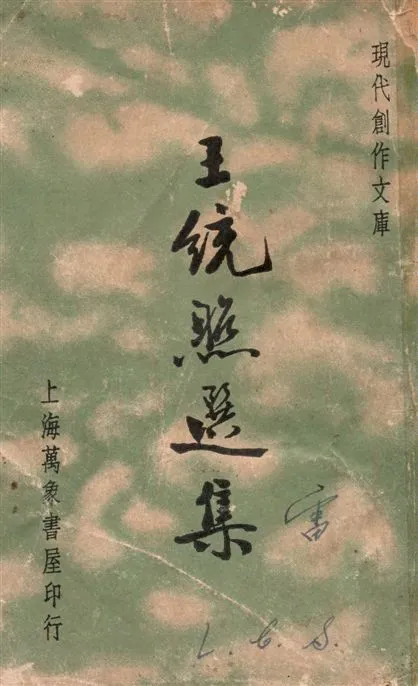 現代創作文庫
王統照選集
上海萬象書屋印行
L. C. S.